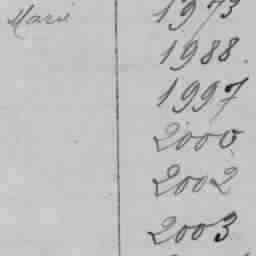 Mari 1973
1988.
1997
2000
2002
2003